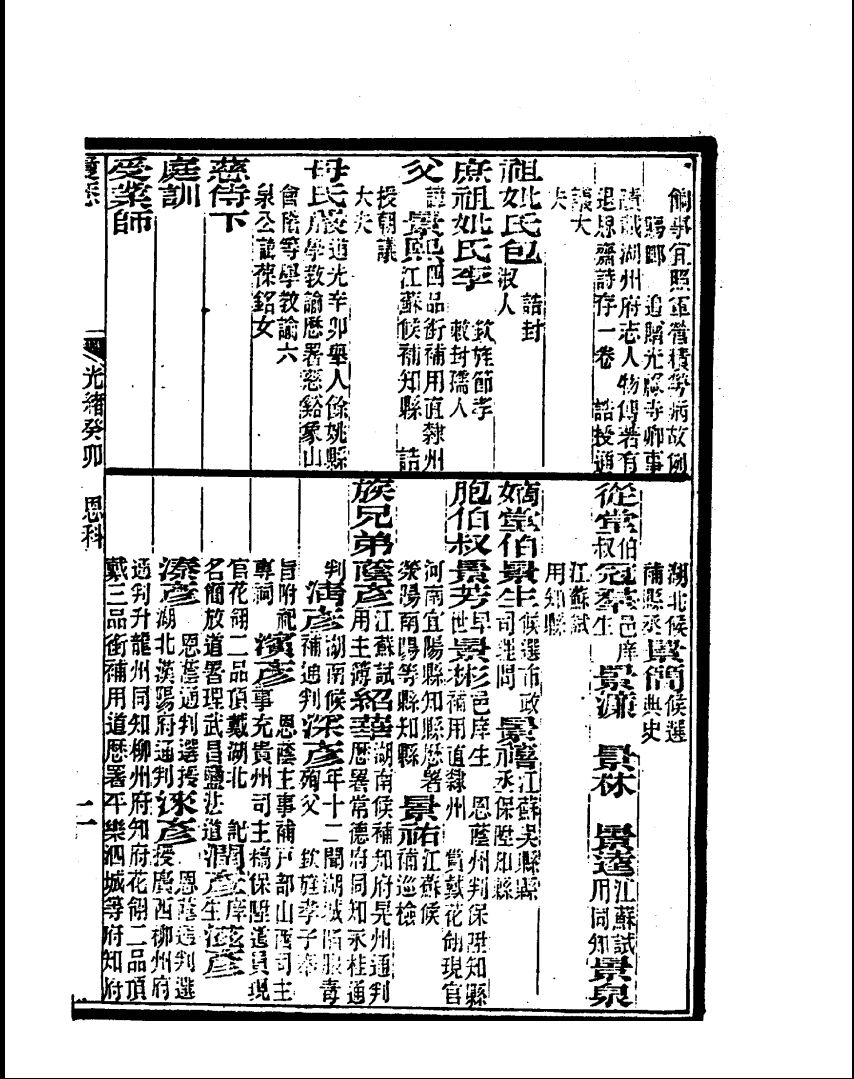 湖州府志人物傳著有
退思齋詩存一卷 誥授通
議大
夫
祖妣氏包 誥封
淑人
庶祖妣氏李 欽旌節孝
敕封孺人
父 諱景熙 四品銜補用直隸州
江蘇候補知縣 誥
授朝議
大夫
母氏 道光辛卯舉人餘姚縣
學教諭歷署慈谿象山
會陞等學教諭六
泉公諱葆銘女
慈侍下
庭訓
受業師
湖北候
補縣丞 景簡 候選
典史
從堂伯叔 冠羣 邑庠
生 景濂 景林 景逵 江蘇試
用同知 景泉
江蘇試
用知縣
嫡堂伯 景生 候選布政
司理問 景禧 江蘇吳縣縣
丞保陞知縣
胞伯叔 景芳 早
世 景彬 邑庠生 恩蔭州判保陞知縣
補用直隸州 賞戴花翎現官
河南宜陽縣知縣歷署
滎陽南陽等縣知縣 景祐 江蘇候
補巡檢
族兄弟 蔭彥 江蘇試
用主簿 紹華 湖南候補知府晃州通判
歷署常德府同知永桂通
判 濤彥 湖南候
補通判 深彥 年十二聞湖城陷服毒
殉父 欽旌孝子奉
旨附祀
專祠 濱彥 恩蔭主事補戶部山西司主
事充貴州司主稿保陞道員現
官花翎二品頂戴湖北
名簡放道署理武昌鹽法道 潤彥 庠
生 滋彥
溱彥 恩蔭通判選授
湖北漢陽府通判 淶彥 恩蔭通判選
授廣西柳州府
通判升龍州同知柳州府知府花翎二品頂
戴三品銜補用道歷署平樂泗城等府知府
光緒癸卯 恩科
二